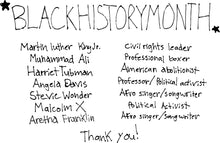 BLACKHISTORYMONTH
Martin luther King Jr. Civil rights leader
Muhammad Ali Professional boxer
Harriet Tubman American abolitionist
Angela Davis Professor/Political activist
Stevie Wonder Afro singer/songwriter
Malcolm X Political Activist
Aretha Franklin Afro singer/songwriter
Thank you!